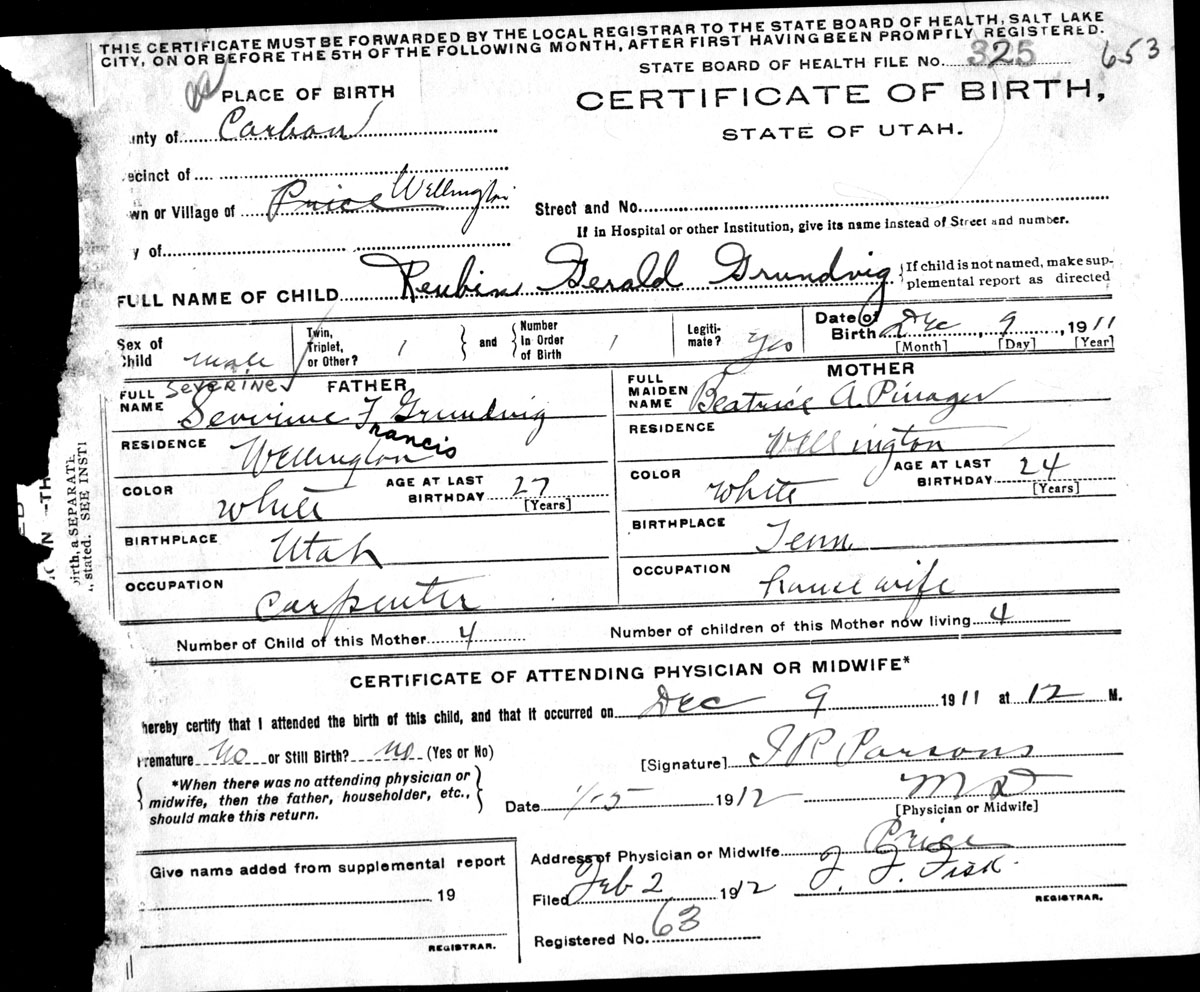 THIS CERTIFICATE MUST BE FORWARDED BY THE LOCAL REGISTRAR TO THE STATE BOARD OF HEALTH, SALT LAKE
CITY, ON OR BEFORE THE 5TH OF THE FOLLOWING MONTH, AFTER FIRST HAVING BEEN PROMPTLY REGISTERED.
STATE BOARD OF HEALTH FILE No. 325 653
PLACE OF BIRTH
CERTIFICATE OF BIRTH,
STATE OF UTAH.
unty of Carbon
ecinct of
wn or Village of Price Wellington
Street and No.
If in Hospital or other Institution, give its name instead of Street and number.
y of
FULL NAME OF CHILD Reubin Gerald Grundvig {If child is not named, make sup-
plemental report as directed
Sex of Child male
Twin, Triplet, or Other? 1
and
Number In Order of Birth 1
Legiti-mate? Yes
Date of Birth Dec, 9, 1911
[Month] [Day] [Year]
FATHER
FULL NAME Severine
Severine F Grundvig
Francis
RESIDENCE Wellington
COLOR White
AGE AT LAST BIRTHDAY 27
[Years]
BIRTHPLACE Utah
OCCUPATION Carpenter
MOTHER
FULL MAIDEN NAME Beatrice A.
RESIDENCE Wellington
COLOR White
AGE AT LAST BIRTHDAY 24
[Years]
BIRTHPLACE Tenn
OCCUPATION housewife
Number of Child of this Mother 4
Number of children of this Mother now living 4
CERTIFICATE OF ATTENDING PHYSICIAN OR MIDWIFE*
hereby certify that I attended the birth of this child, and that it occurred on Dec 9 1911 at 12 M.
Premature No or Still Birth? no (Yes or No)
[Signature] Parsons
*When there was no attending physician or
midwife, then the father, householder, etc.,
should make this return.
Date 1-5 1912 M D
[Physician or Midwife]
Address of Physician or Midwife Price
Filed Feb 2 1912 Fisk.
REGISTRAR.
Registered No. 63
Give name added from supplemental report
19
REGISTRAR.
birth, a SEPARATE
stated. SEE INST